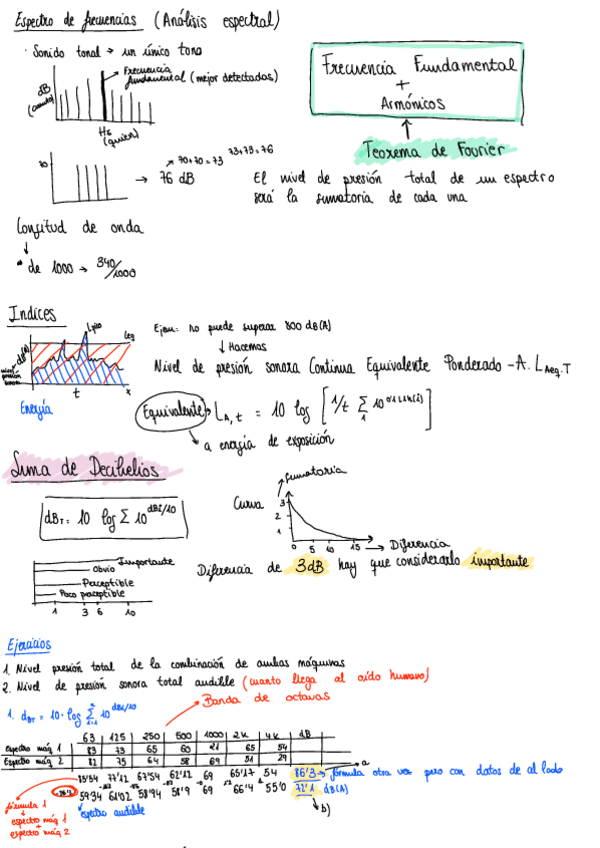 Espectro de frecuencias (Análisis espectral)
· Sonido tonal → un único tono
Frecuencia
fundamental (mejor detectadas)
dB
(cuanto)
Hz
(quien)
Frecuencia Fundamental
+
Armónicos
Teorema de Fourier
70
→ 76 dB
70+70=73
73+73=76
El nivel de presión total de un espectro
será la sumatoria de cada una
Longitud de onda
de 1000 → 340/1000
Indices
Lpico
Leq
dB(A)
nivel
presión
sonora
t
Energía
Ejem: no puede superar 300 dB(A)
↓ Hacemos
Nivel de presión sonora Continua Equivalente Ponderado - A. LAeq.T
Equivalente → LA,t = 10 log [1/t Σ 10
a energía de exposición
Suma de Decibelios
dBT = 10 log Σ 10^dBi/10
sumatoria
Curva
3
2
1
0 5 10 15 → Diferencia
Diferencia de 3dB hay que considerarlo importante
Importante
Obvio
Perceptible
Poco perceptible
1 3 6 10
Ejercicios
1. Nivel presión total de la combinación de ambas máquinas
2. Nivel de presión sonora total audible (cuanto llega al oído humano)
Banda de octavas
1. dBT = 10·log Σ 10^dBi/10
63 125 250 500 1000 2K 4K dB
Espectro máq 1 83 73 65 60 21 65 54
Espectro máq 2 82 75 64 58 69 51 29
85'54 77'12 67'54 62'12 69 65'17 54 86'3 → fórmula otra vez pero con datos de al lado
a
59'34 61'02 58'94 58'9 69 66'4 55'0 72'1 dB(A)
b)
fórmula 1
espectro máq 1
+
espectro máq 2
espectro audible